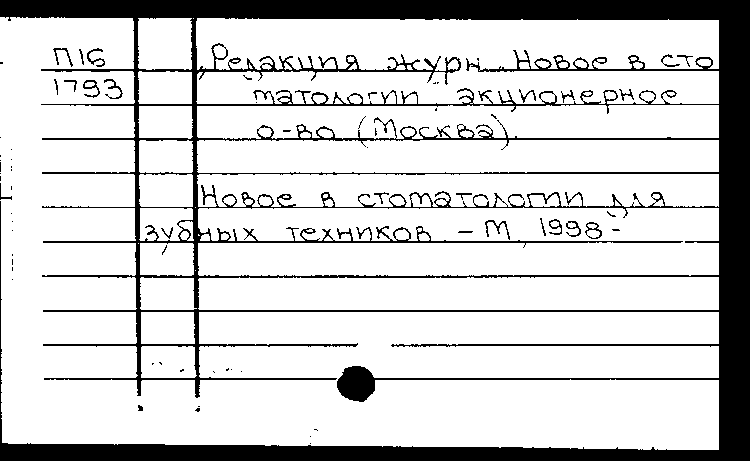 П16
1793
„Редакция журн. Новое в сто
матологии", акционерное
о-во (Москва).
Новое в стоматологии для
зубных техников. - М., 1998 -